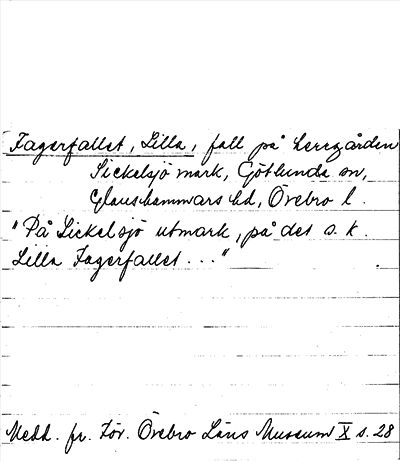 Fagerfallet, Lilla, fall på herrgården
Sickelsjö mark, Götlunda sn,
Glanshammars hd, Örebro l.
"På Sickelsjö utmark, på det s. k.
Lilla Fagerfallet ..."
Medd. fr. För. Örebro Läns Museum X s. 28